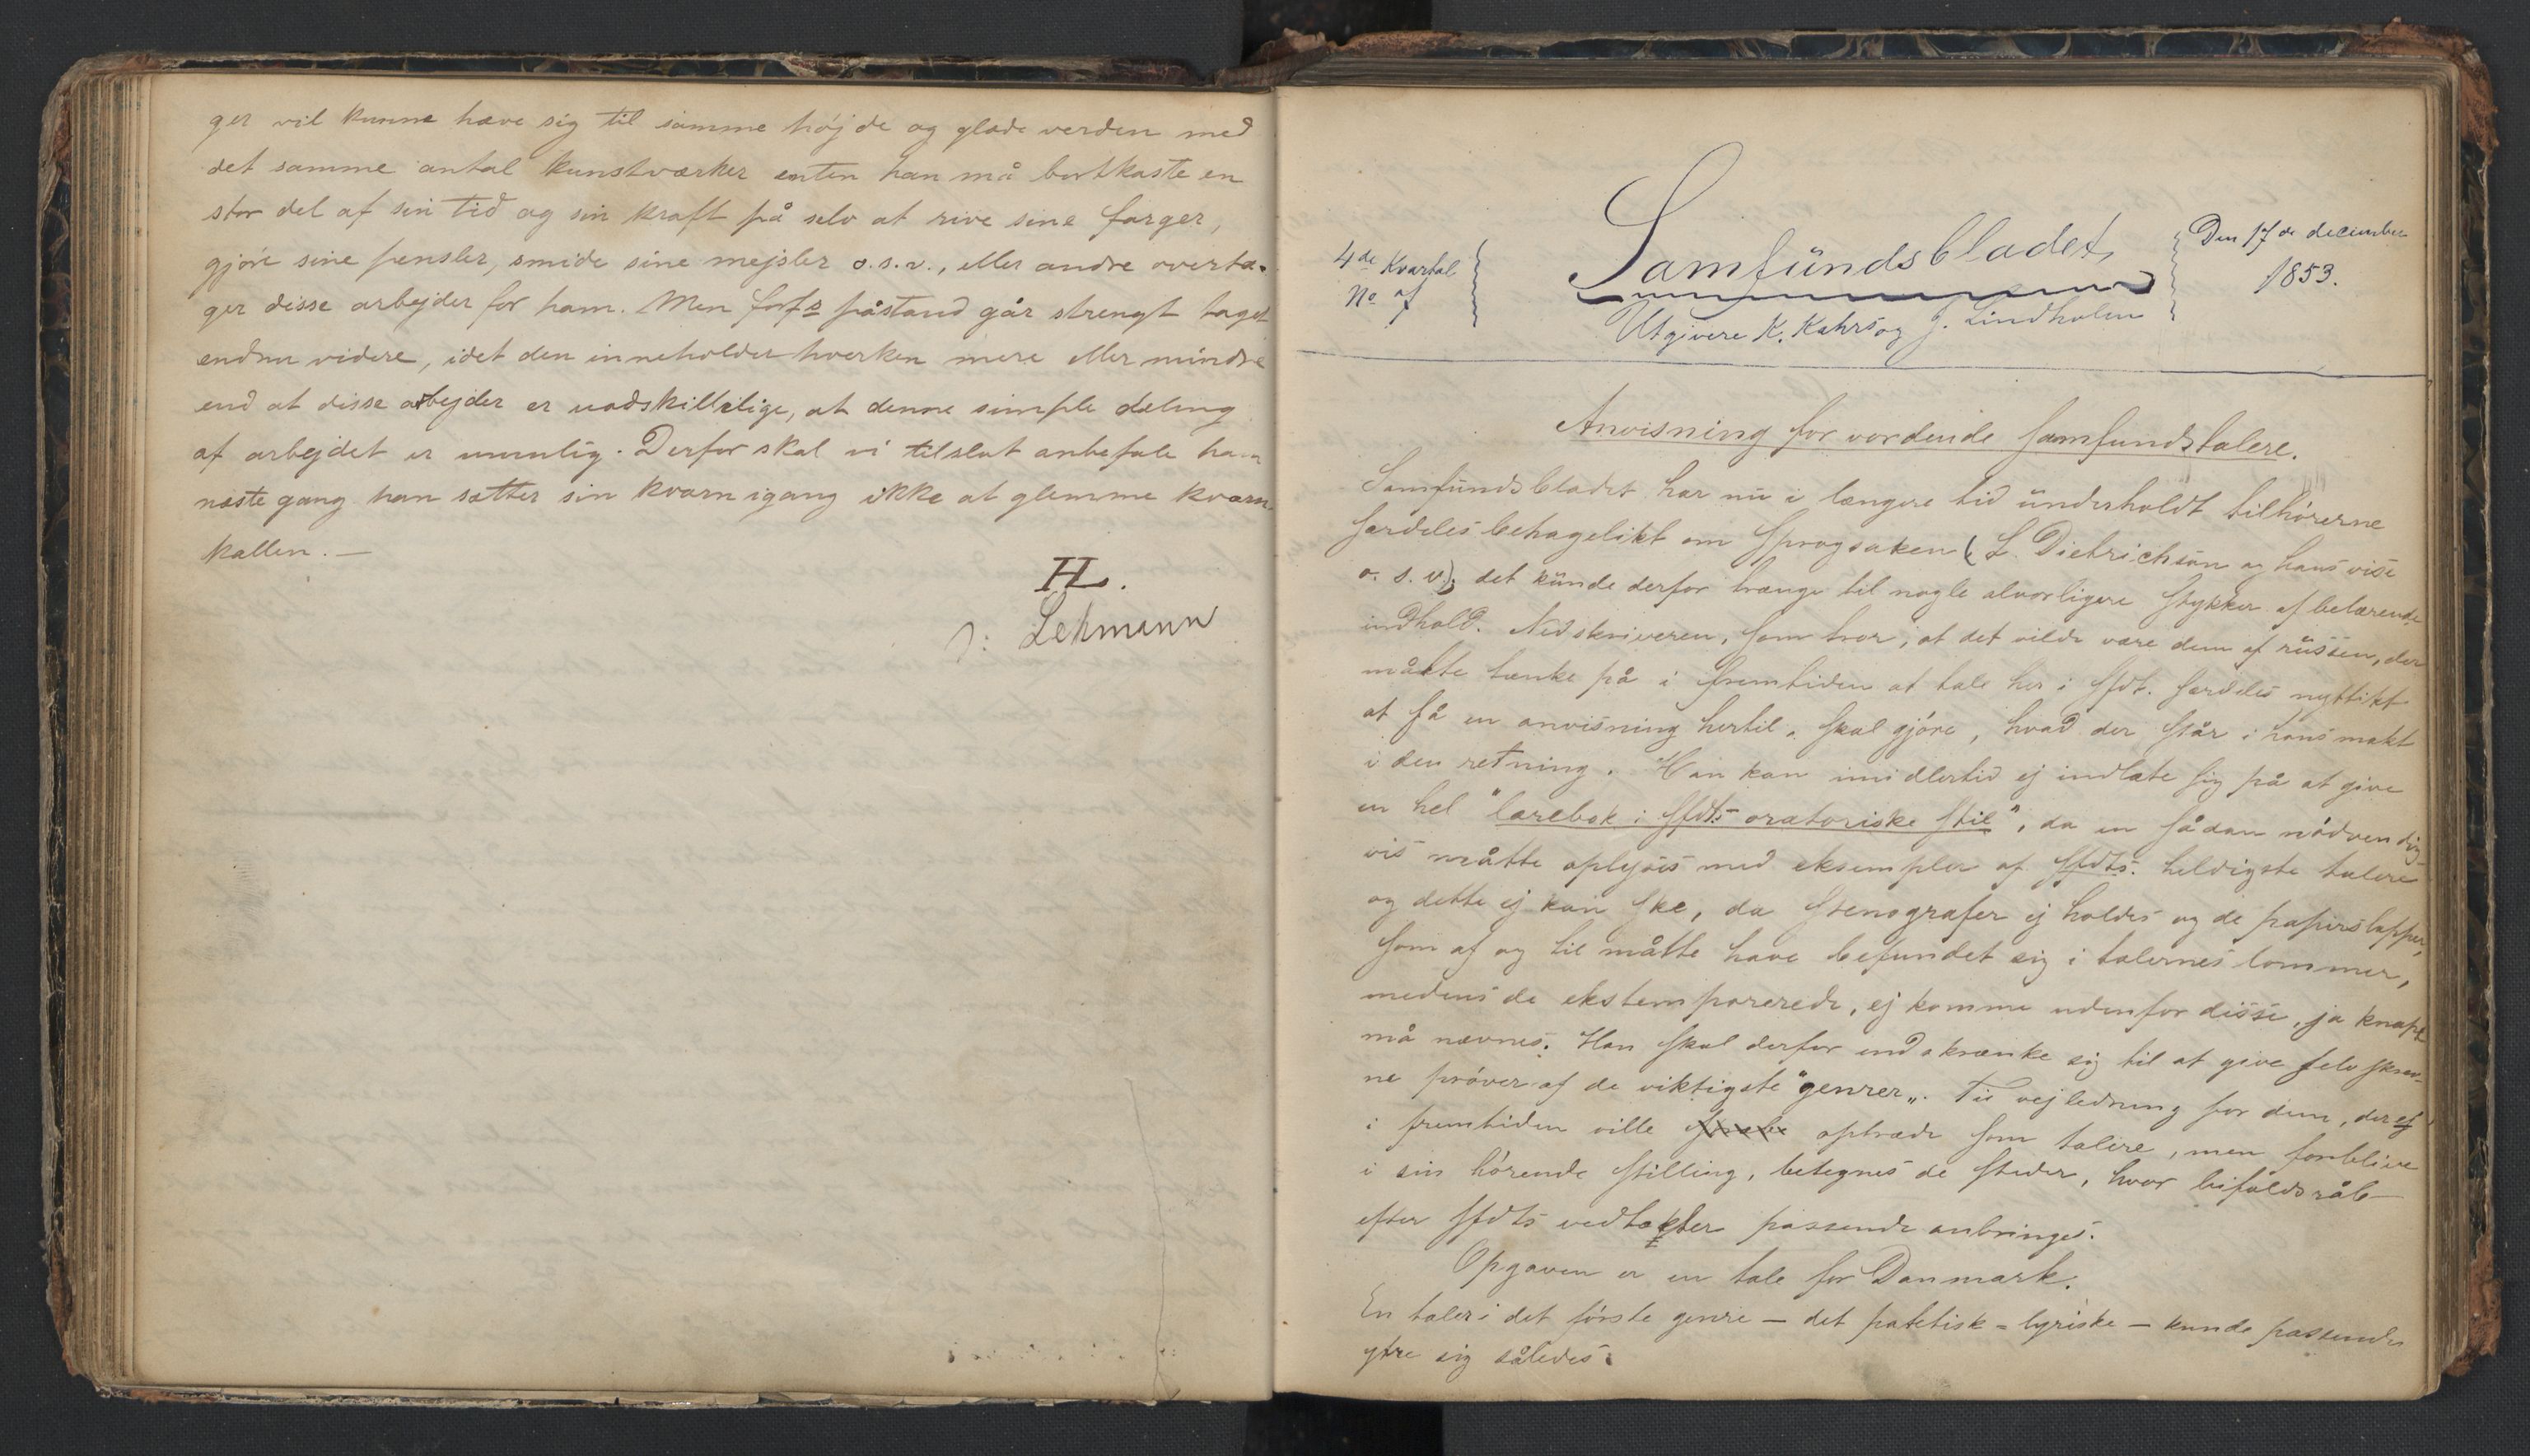 ger vil kunne hæve sig til samme højde og glæde verden med
det samme antal kunstværker enten han må bortkaste en
stor del af sin tid og sin kraft på selv at rive sine farger,
gjøre sine pensler, smide sine mejsler o.s.v., eller andre overta-
ger disse arbejder for ham. Men forfs påstand går strengt taget
endnu videre, idet den inneholder hverken mere eller mindre
end at disse arbejder er uadskillelige, at denne simple deling
af arbejdet er umulig. Derfor skal vi tilslut anbefale ham
næste gang han sætter sin kværn igang ikke at glemme kværn-
kallen. —
HL.
ɔ: Lehmann
4de Kvartal
No 7
Samfündsbladet
Den 17de december
1853.
Utgivere K. Kahrs og J. Lindholm
Anvisning for vordende samfundstalere.
Samfündsbladet har nü i længere tid ünderholdt tilhørerne
særdeles behagelikt om sprogsaken (L. Dietrichson og hans vise
o. s. v.); det künde derfor trænge til nogle alvorligere stykker af belærende
indhold. Nedskriveren, som tror, at det vilde være dem af rüssen, der
måtte tænke på i fremtiden at tale her i Sfdt. særdeles nyttikt
at få en anvisning hertil, skal gjøre, hvad der står i hans makt
i den retning. Han kan imidlertid ej indlate sig på at give
en hel "lærebok i Sfdts oratoriske stil", da en sådan nødvendig-
vis måtte oplyses med eksempler af Sfdts. heldigste talere
og dette ej kan ske, da stenografer ej holdes og de papirslapper,
som af og til måtte have befundet sig i talernes lommer,
medens de ekstemporerede, ej komme udenfor disse, ja knapt
må nævnes. Han skal derfor indskrænke sig til at give selvskrev-
ne prøver af de viktigste "genrer„. Til vejledning for dem, der ej
i fremtiden ville optræde som talere, men forblive
i sin hørende stilling, betegnes de steder, hvor bifaldsråb
efter Sfdts vedtækter passende anbringes.
Opgaven er en tale for Danmark.
En taler i det første genre — det patetisk-lyriske — kunde passende
ytre sig således: